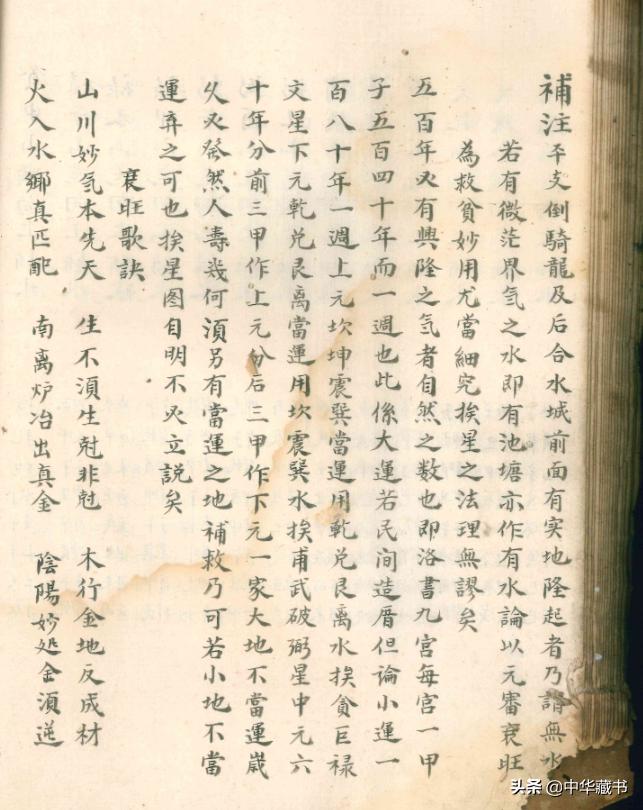 補注 平支倒騎龍及后合水城前面有实地隆起者乃謂無水
若有微茫界氣之水即有池塘亦作有水論以元審衰旺
為救貧妙用尤當細究挨星之法理無謬矣
五百年必有興隆之氣者自然之数也即洛書九宮每宮一甲
子五百四十年而一週也此係大運若民间造厝但論小運一
百八十年一週上元坎坤震巽當運用乾兑艮离水挨貪巨祿
文星下元乾兑艮离當運用坎震巽水挨甫武破弼星中元六
十年分前三甲作上元分后三甲作下元一家大地不當運歲
久必發然人壽幾何須另有當運之地補救乃可若小地不當
運弃之可也挨星图自明不必立説矣
衰旺歌訣
山川妙气本先天 生不須生尅非尅 木行金地反成材
火入水鄉真匹配 南离炉冶出真金 陰陽妙処全須逆
头条 @中华藏书